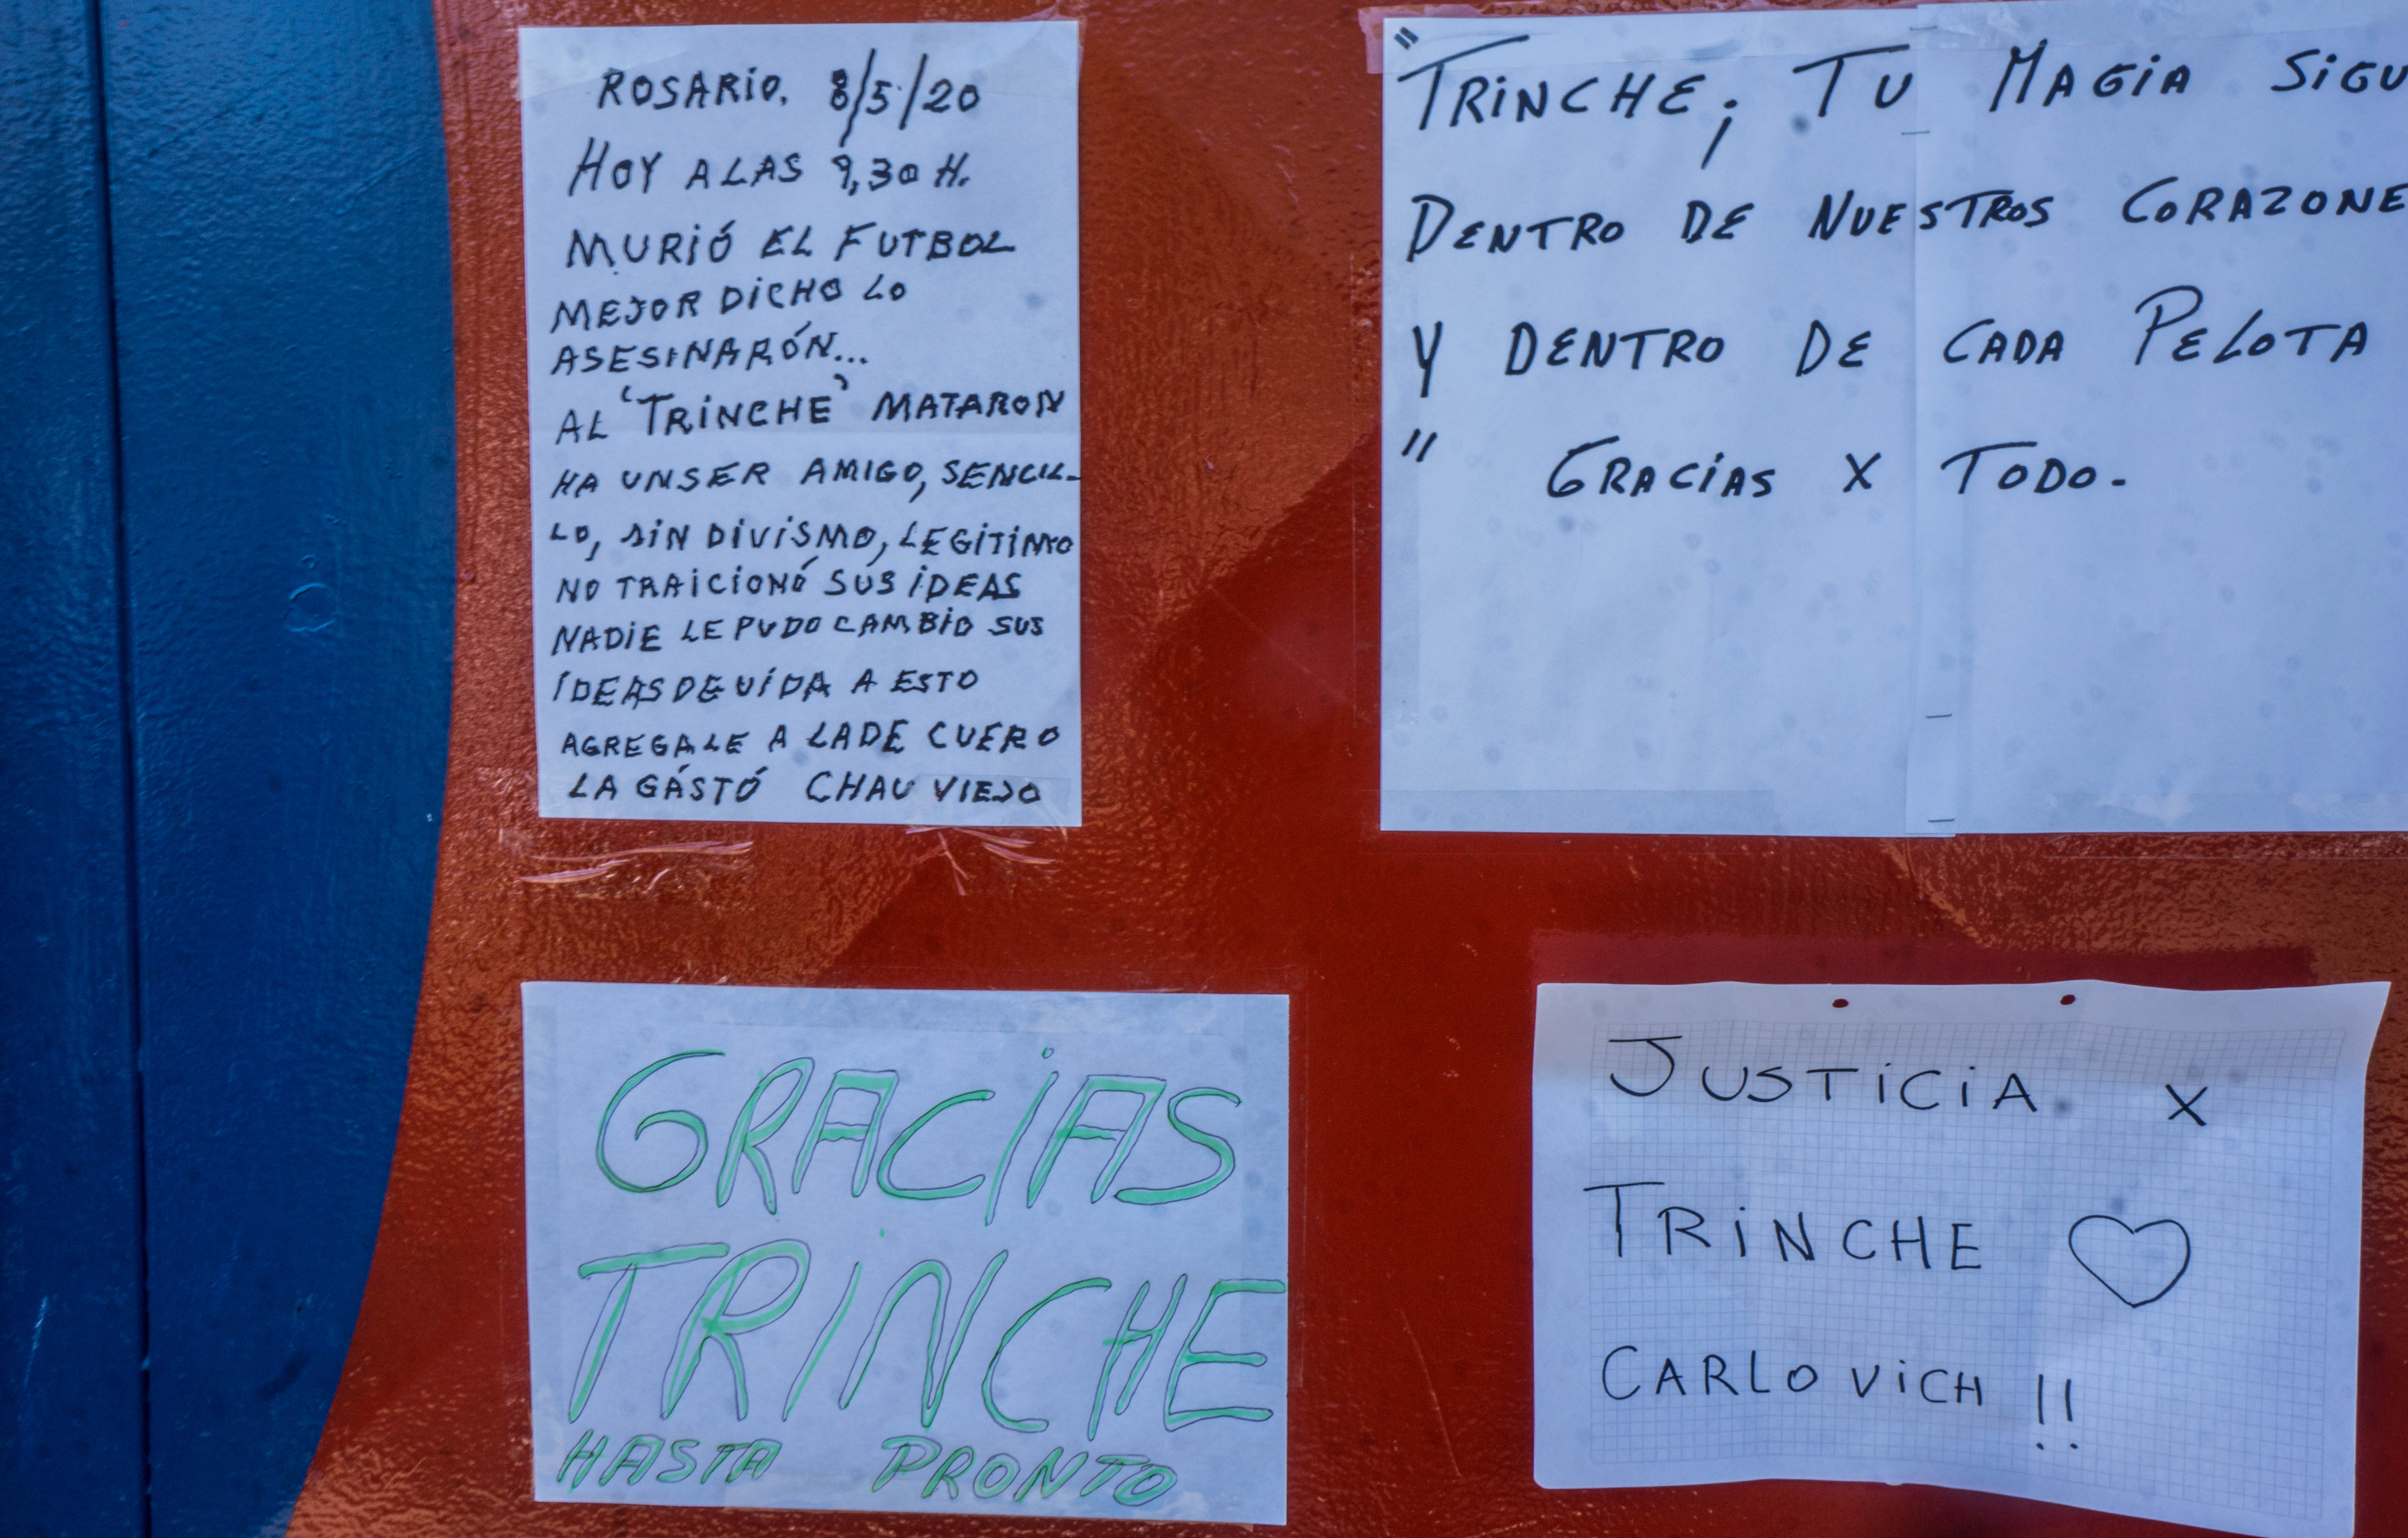 ROSARIO. 8/5/20
HOY A LAS 9,30 H.
MURIÓ EL FUTBOL
MEJOR DICHO LO
ASESINARÓN...
AL 'TRINCHE' MATARON
HA UN SER AMIGO, SENCIL-
LO, SIN DIVISMO, LEGITIMO
NO TRAICIONÓ SUS IDEAS
NADIE LE PUDO CAMBIO SUS
IDEAS DE VIDA A ESTO
AGREGALE A LA DE CUERO
LA GÁSTÓ CHAU VIEJO
"TRINCHE; TU MAGIA SIGU
DENTRO DE NUESTROS CORAZONE
Y DENTRO DE CADA PELOTA
" GRACIAS X TODO.
GRACIAS
TRINCHE
HASTA PRONTO
JUSTICIA X
TRINCHE ♡
CARLOVICH !!